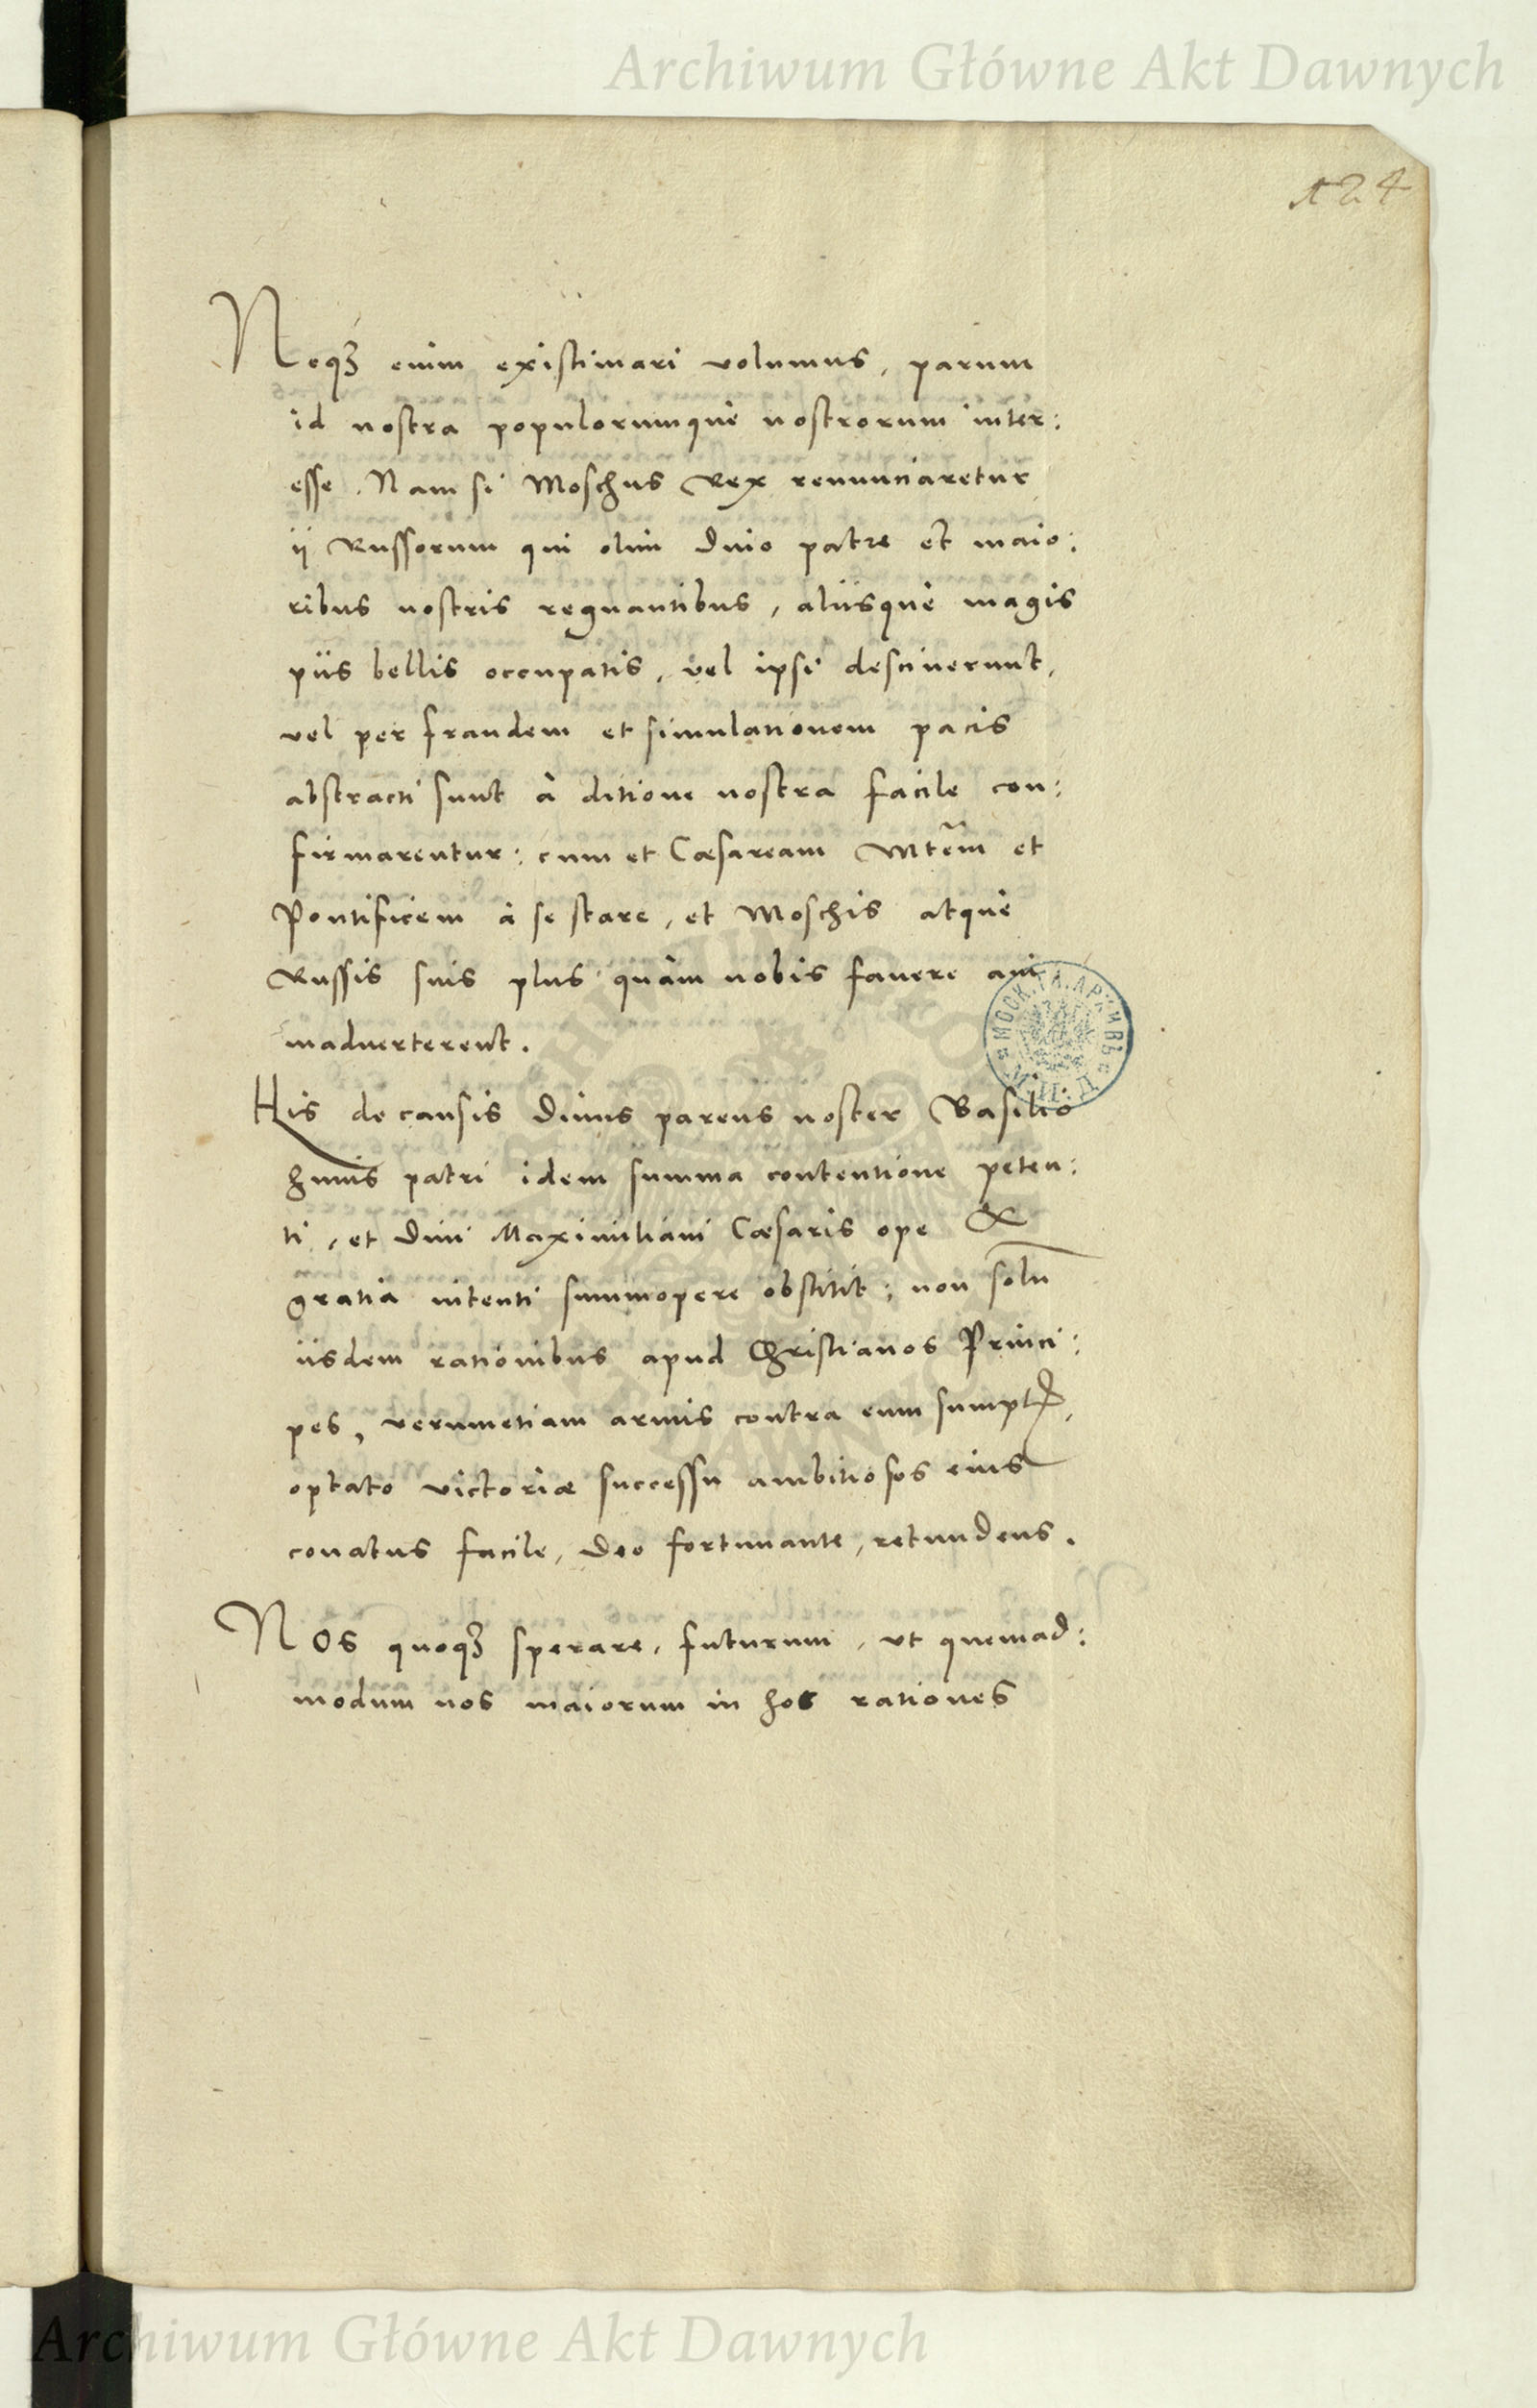 Archiwum Główne Akt Dawnych
124
Neqꝫ enim existimari volumus, parum
id nostra populorumquè nostrorum inter:
esse. Nam si Moschus Rex renunciaretur
ij Russorum qui olim Diuo patre et maio:
ribus nostris regnantibus, aliisquè magis
piis bellis occupatis, vel ipsi desciuerunt,
vel per fraudem et simulationem pacis
abstracti sunt à ditione nostra facile con:
firmarentur: cum et Cæsaream Mtẽm et
Pontificem à se stare, et Moschis atquè
Russis suis plus quàm nobis fauere ani
maduerterent.
His de causis Diuus parens noster Basilio
huius patri idem summa contentione peten:
ti, et Diui Maximiliani Cæsaris ope &
gratia nitenti summopere obstitit: non solũ
iisdem rationibus apud Christianos Princi:
pes, verumetiam armis contra eum sumptꝭ,
optato victoriæ successu ambitiosos eius
conatus facile, Deo fortunante, retundens.
Nos quoqꝫ sperare, futurum, vt quemad:
modum nos maiorum in hoc rationes
МОСК. ГЛ. АРХИВЪ
Archiwum Główne Akt Dawnych